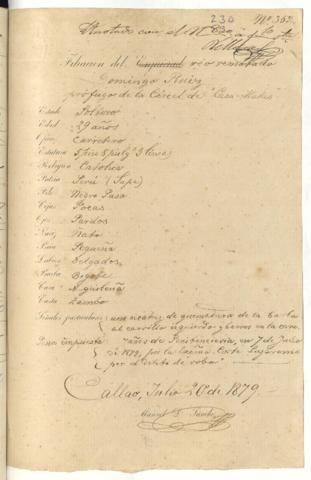 230
Nº 362
Anotado con el Nº
Filiacion del Enjuiciado reo rematado
Domingo Ruiz
prófugo de la Cárcel de "Casa-Mata"
Estado Soltero
Edad 29 años
Oficio Carretero
Estatura 5 pies 5 pulgs 3 lineas
Religion Católica
Patria Perú (Supe)
Pelo Negro Pasa
Cejas Pocas
Ojos Pardos
Nariz Ñata
Boca Pequeña
Labios Delgados
Barba Bigote
Cara Aguileña
Casta Zambo
Señales particulares una cicatriz de quemadura de la barba
al carrillo izquierdo y barros en la cara.
Pena impuesta 7 años de Penitenciaria, en 7 de Junio
de 1878, por la Excma. Corte Suprema
por el delito de robo.
Callao, Julio 20 de 1879.
Manuel